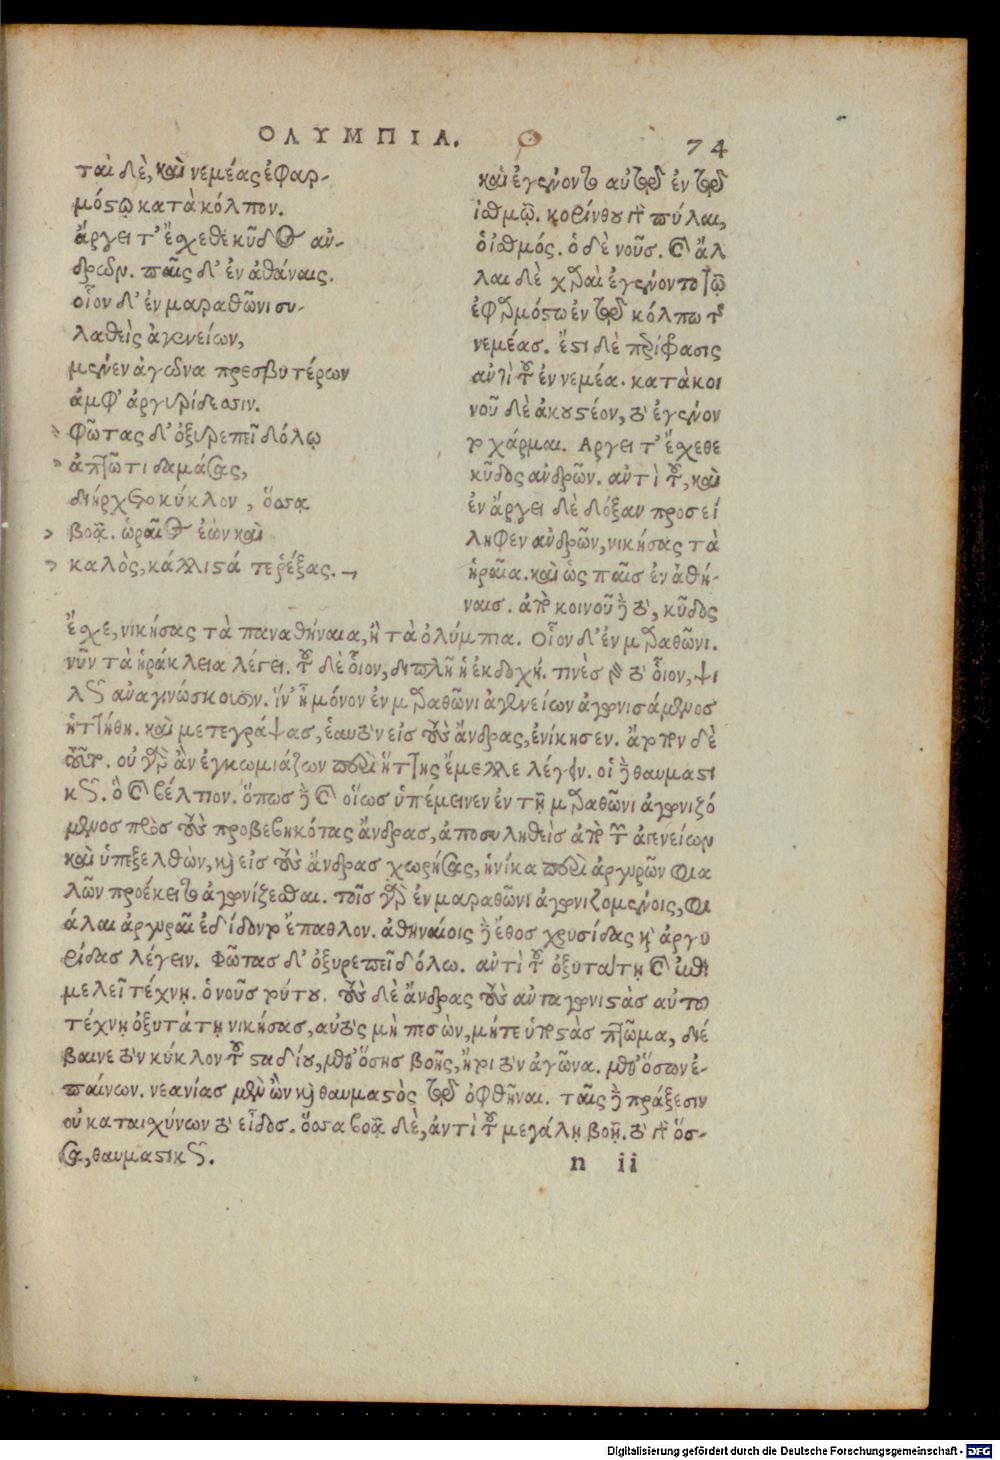 ΟΛΥΜΠΙΑ. 74
ται δὲ, καὶ νεμέας ἐφαρ-
μόστῳ κατὰ κόλπον.
ἄργει τ' ἔσχεθε κῦδος αν-
δρῶν. παῖς δ' ἐν ἀθάναις.
οἷον δ' ἐν μαραθῶνι συ-
λαθεὶς ἀγενείων,
μένεν ἀγῶνα πρεσβυτέρων
ἀμφ' ἀργυρίδεσσιν.
Φῶτας δ' ὀξυρεπεῖ δόλῳ
ἀπτῶτι δαμάσας,
διήρχετο κύκλον, ὅσσᾳ
βοᾷ. ὡραῖος ἐὼν καὶ
καλὸς, κάλλιστά τε ῥέξας.
καὶ ἐγένοντο αὐτῷ ἐν τῷ
ἰσθμῷ. κορίνθου δὲ πύλαι,
ὁ ἰσθμός. ὁ δὲ νοῦς. καὶ ἄλ
λαι δὲ χαραὶ ἐγένοντο τῷ
ἐφαρμόστω ἐν τῷ κόλπω τῆς
νεμέας. ἔστι δὲ περίφρασις
αντὶ τοῦ ἐν νεμέα. κατὰ κοι
νοῦ δὲ ἀκουστέον, τὸ ἐγένον
το χάρμαι. Αργει τ' ἔσχεθε
κῦδος ανδρῶν. αντὶ τοῦ, καὶ
ἐν ἄργει δὲ δόξαν προσεί
ληφεν ανδρῶν, νικήσας τὰ
ἡραῖα. καὶ ὡς παῖς ἐν ἀθή-
ναις. ἀπὸ κοινοῦ δὲ τὸ, κῦδος
ἔσχε, νικήσας τὰ παναθήναια, ἢ τὰ ὀλύμπια. Οἷον δ' ἐν μαραθῶνι.
νῦν τὰ ἡράκλεια λέγει. τοῦ δὲ οἷον, διπλῆ ἡ ἐκδοχή. τινὲς γὰρ τὸ οἷον, ψι
λῶς αναγινώσκουσιν. ἵν' ᾖ μόνον ἐν μαραθῶνι ἀγενείων ἀγωνισάμενος
ἡττήθη. καὶ μετεγράψας, ἑαυτὸν εἰς τοὺς ἄνδρας, ἐνίκησεν. ἄτοπον δὲ
τοῦτο. οὐ γὰρ ἂν ἐγκωμιάζων περὶ ἥττης ἔμελλε λέγειν. οἱ δὲ θαυμαστι
κῶς. ὃ καὶ βέλτιον. ὅπως δὲ καὶ οἵως ὑπέμεινεν ἐν τῇ μαραθῶνι ἀγωνιζό
μενος πρὸς τοὺς προβεβηκότας ἄνδρας, ἀποσυληθεὶς ἀπὸ τῶν ἀγενείων
καὶ ὑπεξελθὼν, καὶ εἰς τοὺς ἄνδρας χωρήσας, ἡνίκα περὶ ἀργυρῶν φια
λῶν προέκειτο ἀγωνίζεσθαι. τοῖς γὰρ ἐν μαραθῶνι ἀγωνιζομένοις, φι
άλαι ἀργυραῖ ἐδίδοντο ἔπαθλον. ἀθηναίοις δὲ ἔθος χρυσίδας καὶ ἀργυ
ρίδας λέγειν. Φῶτας δ' ὀξυρεπεῖ δόλω. αντὶ τοῦ ὀξυτάτη καὶ
μελεῖ τέχνῃ. ὁ νοῦς τούτου. τοὺς δὲ ἄνδρας τοὺς ανταγωνιστὰς αὐτοῦ
τέχνῃ ὀξυτάτῃ νικήσας, αὐτὸς μὴ πεσὼν, μήτε ὑποστὰς πτῶμα, διέ
βαινε τὸν κύκλον τοῦ σταδίου, μεθ' ὅσης βοῆς, ἤτοι τὸν ἀγῶνα. μεθ' ὅσων ἐ-
παίνων. νεανίας μὲν ὢν καὶ θαυμαστὸς τῷ ὀφθῆναι. ταῖς δὲ πράξεσιν
οὐ καταισχύνων τὸ εἶδος. ὅσσα βοᾷ δὲ, ἀντὶ τοῦ μεγάλῃ βοῇ. τὸ δὲ ὅσ-
σα, θαυμαστικῶς.
n ii
Digitalisierung gefördert durch die Deutsche Forschungsgemeinschaft - DFG